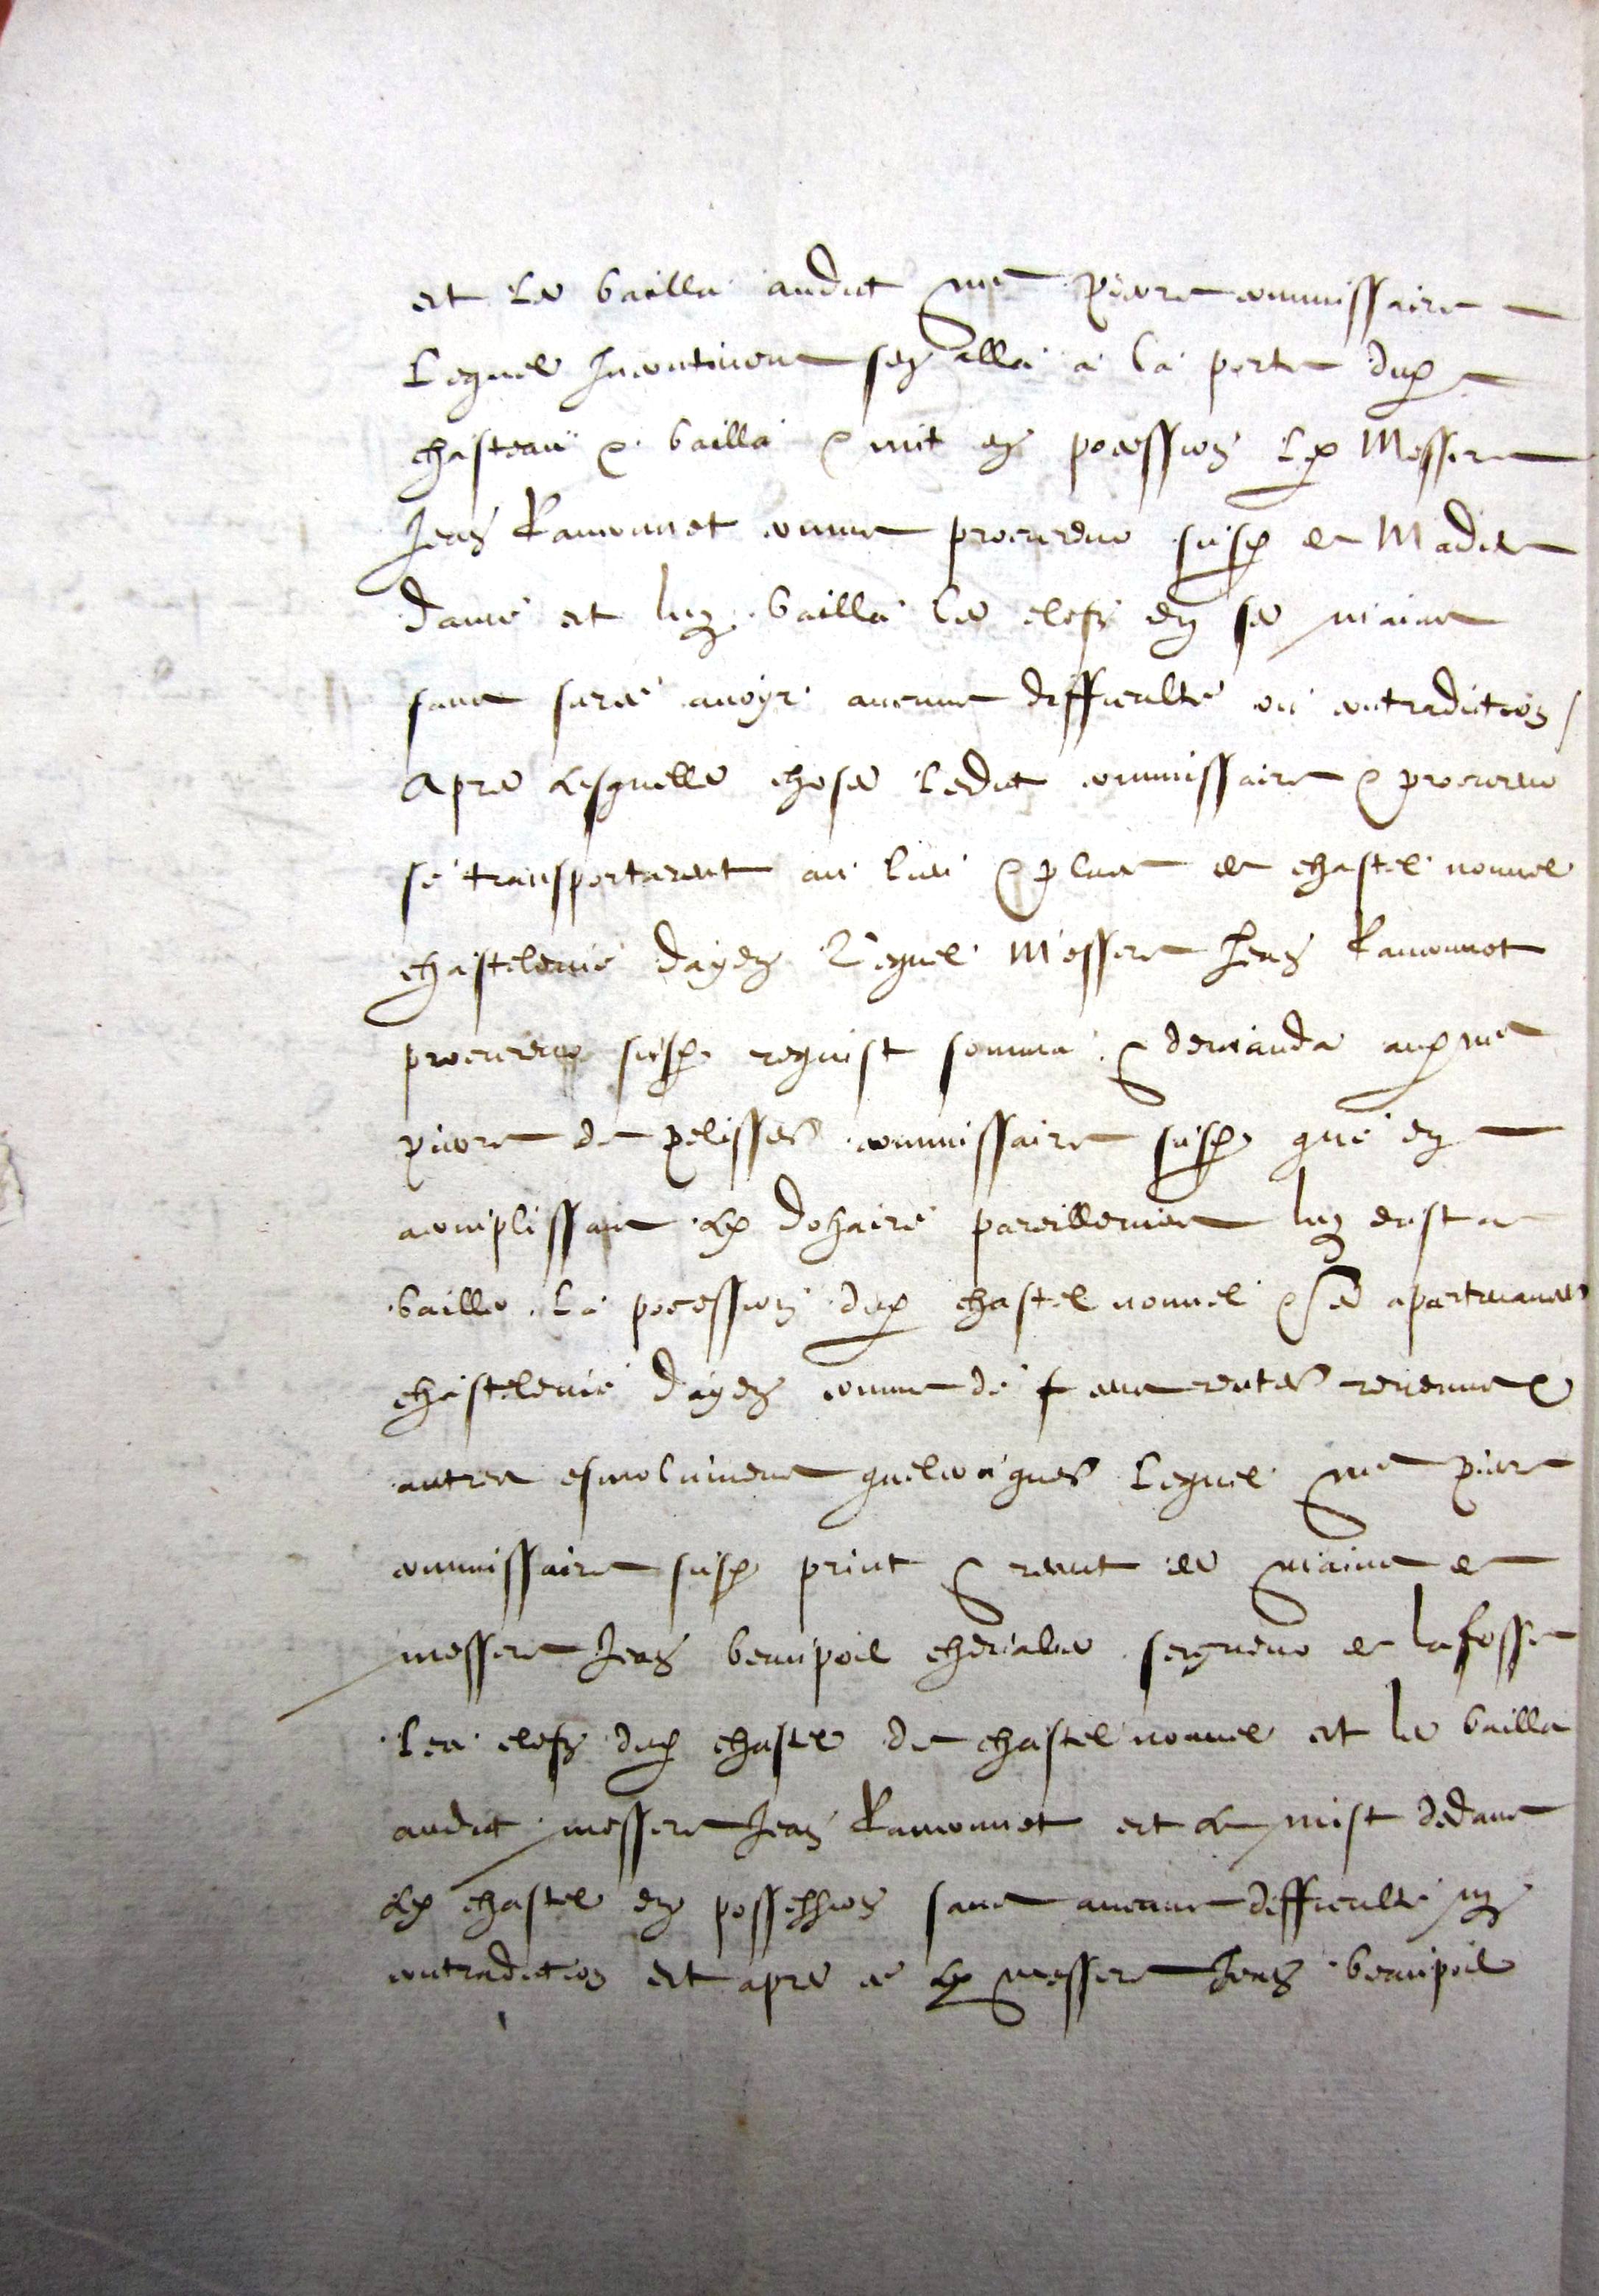 et les bailla audict me pierre commissaire
lequel Incontinent sen alla a la porte dud
chasteau & bailla & mit en pocession led Messire
Jean Ramonnet comme procureur susd de Madite
dame et luy bailla les clefz en ses mains
sans sur ce avoyr aucune difficulte ou contradiction /
Apres lesquelles choses ledict commissaire & procureur
se transportarent au lieu & place de chastel nouvel
chastelenie dayen Lequel Messire Jean Ramonnet
procureur susd requist somma & demanda aud me
pierre de pelisses commissaire susd que en
acomplissant led dohaire pareillement luy eust a
bailler la pocession dud chastel nouvel & ses apartenances
chastelenie dayen comme de cens rentes revenus &
autres esmolumens quelcoques lequel me pierre
commissaire susd print & receut des mains de
messire Jean beaupoil chevalier seigneur de lafosse
les clefz dud chastel de chastel nouvel et les bailla
audict messire Jean Ramonnet et le mist dedans
led chastel en possession sans aucune difficulte ny
contradiction et apres ce led messire Jean beaupoil